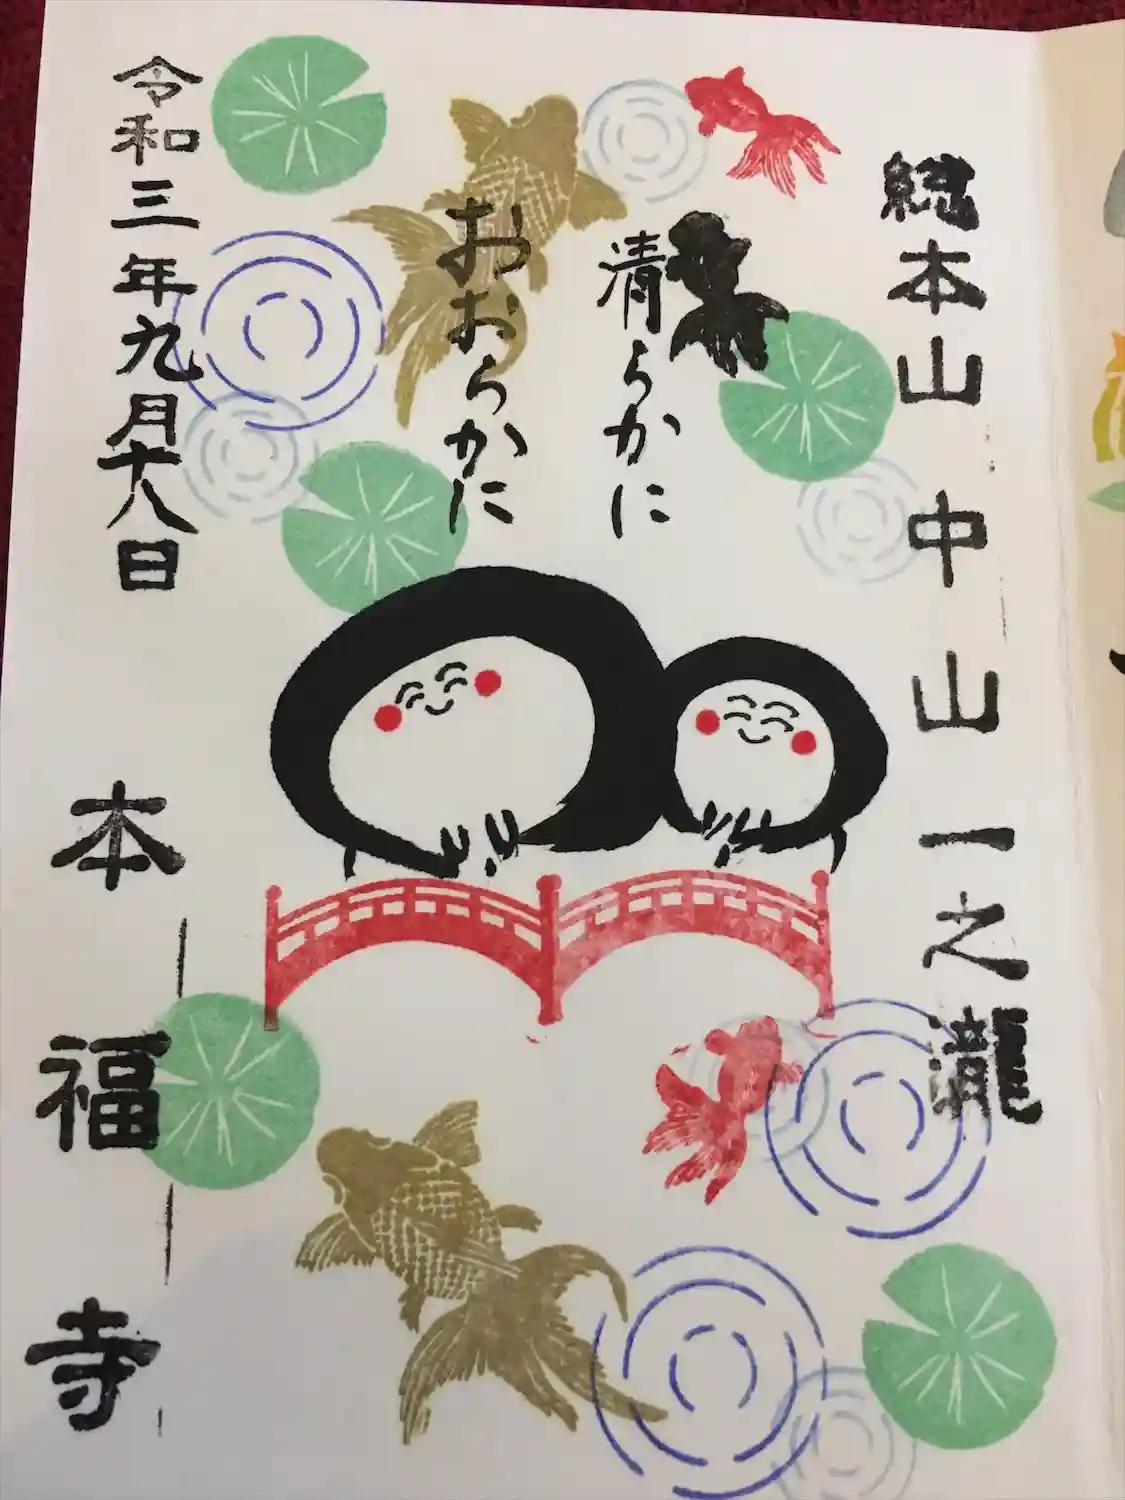 総本山 中山 一之瀧
清らかに
おおらかに
令和三年九月十八日
本福寺